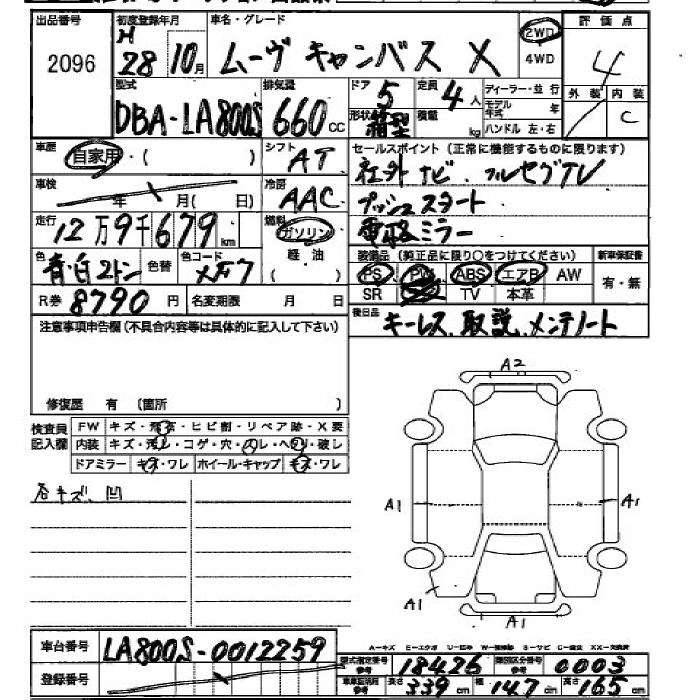 出品番号 初度登録年月 車名・グレード 評価点
2096 H28 10月 ムーヴ キャンバス X 2WD 4WD 4
型式 排気量 ドア 定員 ディーラー・並行 外装 内装
DBA-LA800S 660cc 5 4人 モデル年式 年 C
形状 箱型 積載 kg ハンドル 左・右
車歴 自家用・( ) シフト AT セールスポイント(正常に機能するものに限ります)
社外ナビ フルセグTV
車検 年 月( 日) 冷房 AAC プッシュスタート
走行 12万9千679km 燃料 ガソリン 電格ミラー
軽油 ( ) 装備品(純正品に限り○をつけてください) 新車保証書
色 青・白2トン 色替 色コード PS PW ABS エアB AW 有・無
R券 8790円 名変期限 月 日 SR TV 本革
後日品 キーレス、取説、メンテノート
注意事項申告欄(不具合内容等は具体的に記入して下さい)
修復歴 有 (箇所 )
検査員記入欄 FW キズ・飛石・ヒビ割・リペア跡・X要
内装 キズ・汚レ・コゲ・穴・スレ・ヘタリ・破レ
ドアミラー キズ・ワレ ホイール・キャップ キズ・ワレ
石キズ、凹
A2
A1 A1
A1 A1
車台番号 LA800S-0012259
登録番号
型式指定番号 参考 18426 類別区分番号 参考 0003
車庫証明用 参考 長さ 339cm 幅 147cm 高さ 165cm